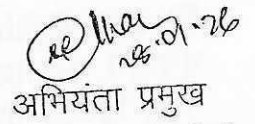 28.01.26
अभियंता प्रमुख